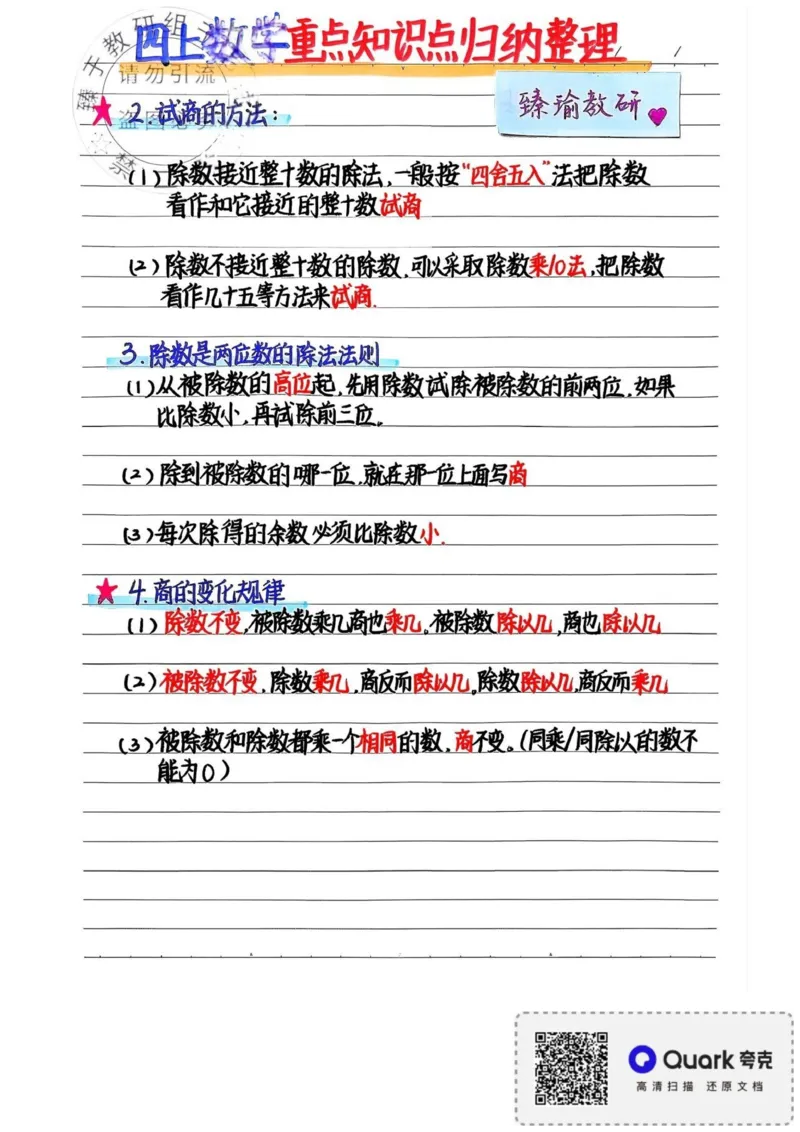 四上数学重点知识点归纳整理
臻于教研组
请勿引流
臻瑜教研
★ 2.试商的方法：
(1)除数接近整十数的除法,一般按“四舍五入”法把除数
看作和它接近的整十数试商
(2)除数不接近整十数的除数,可以采取除数乘10法,把除数
看作几十五等方法来试商.
3.除数是两位数的除法法则
(1)从被除数的高位起,先用除数试除被除数的前两位,如果
比除数小,再试除前三位。
(2)除到被除数的哪一位,就在那一位上面写商
(3)每次除得的余数必须比除数小.
★ 4.商的变化规律
(1)除数不变,被除数乘几商也乘几。被除数除以几,商也除以几
(2)被除数不变,除数乘几,商反而除以几。除数除以几,商反而乘几
(3)被除数和除数都乘一个相同的数,商不变。(同乘/同除以的数不
能为0)
Quark夸克
高清扫描 还原文档